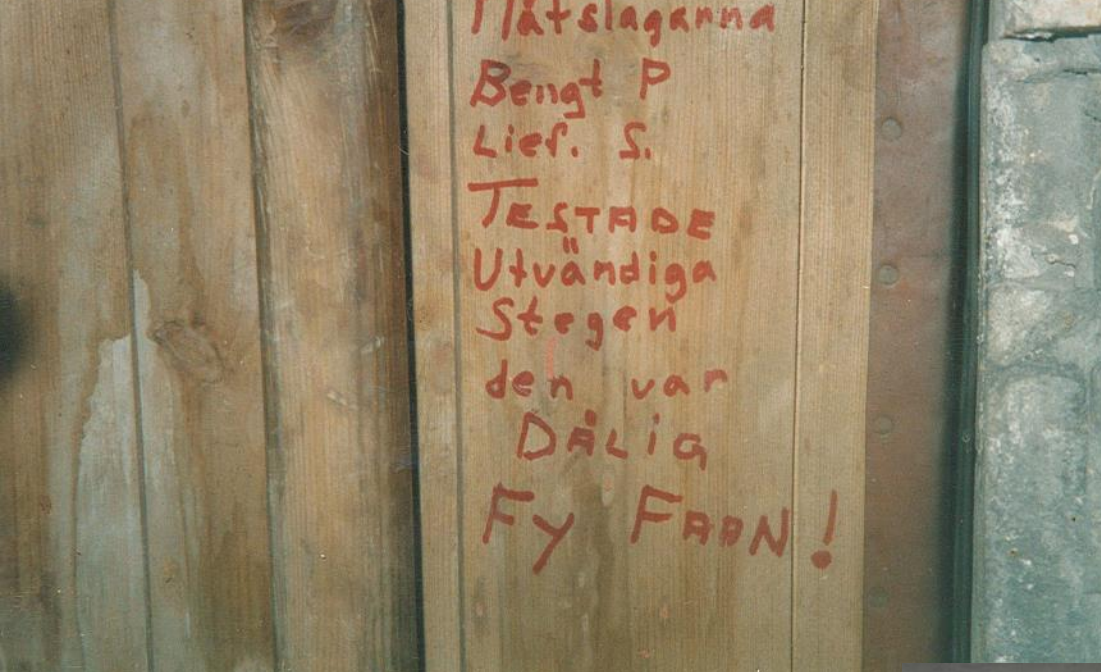 Plåtslagarna
Bengt P
Lief. S.
TESTADE
Utvändiga
Stegen
den var
DÅLiG
FY FAAN!